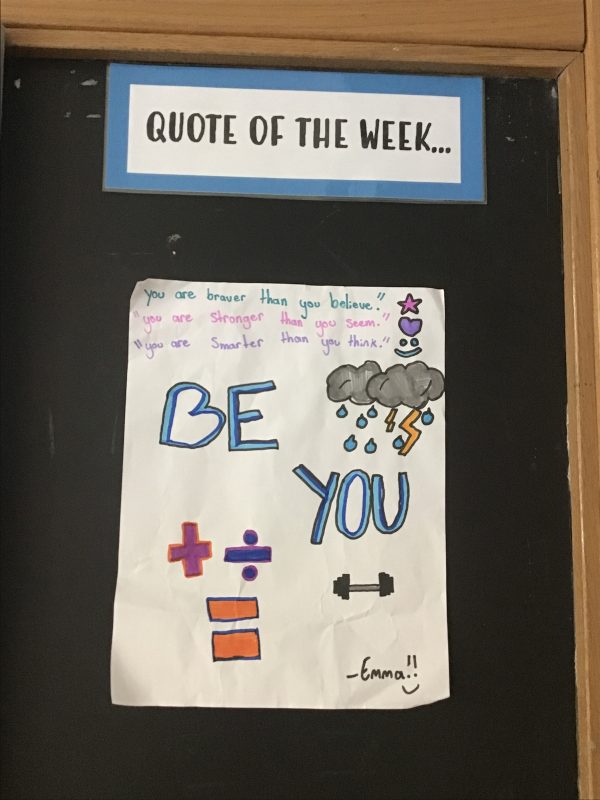 QUOTE OF THE WEEK...
you are braver than you believe."
"you are stronger than you seem."
"you are smarter than you think."
BE
YOU
-Emma!!